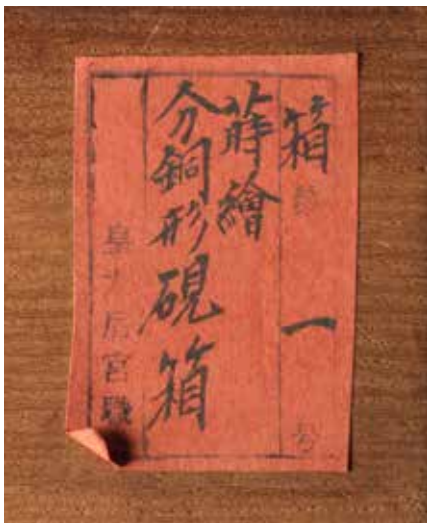 箱 一
蒔繪
分銅形硯箱
皇太后宮職